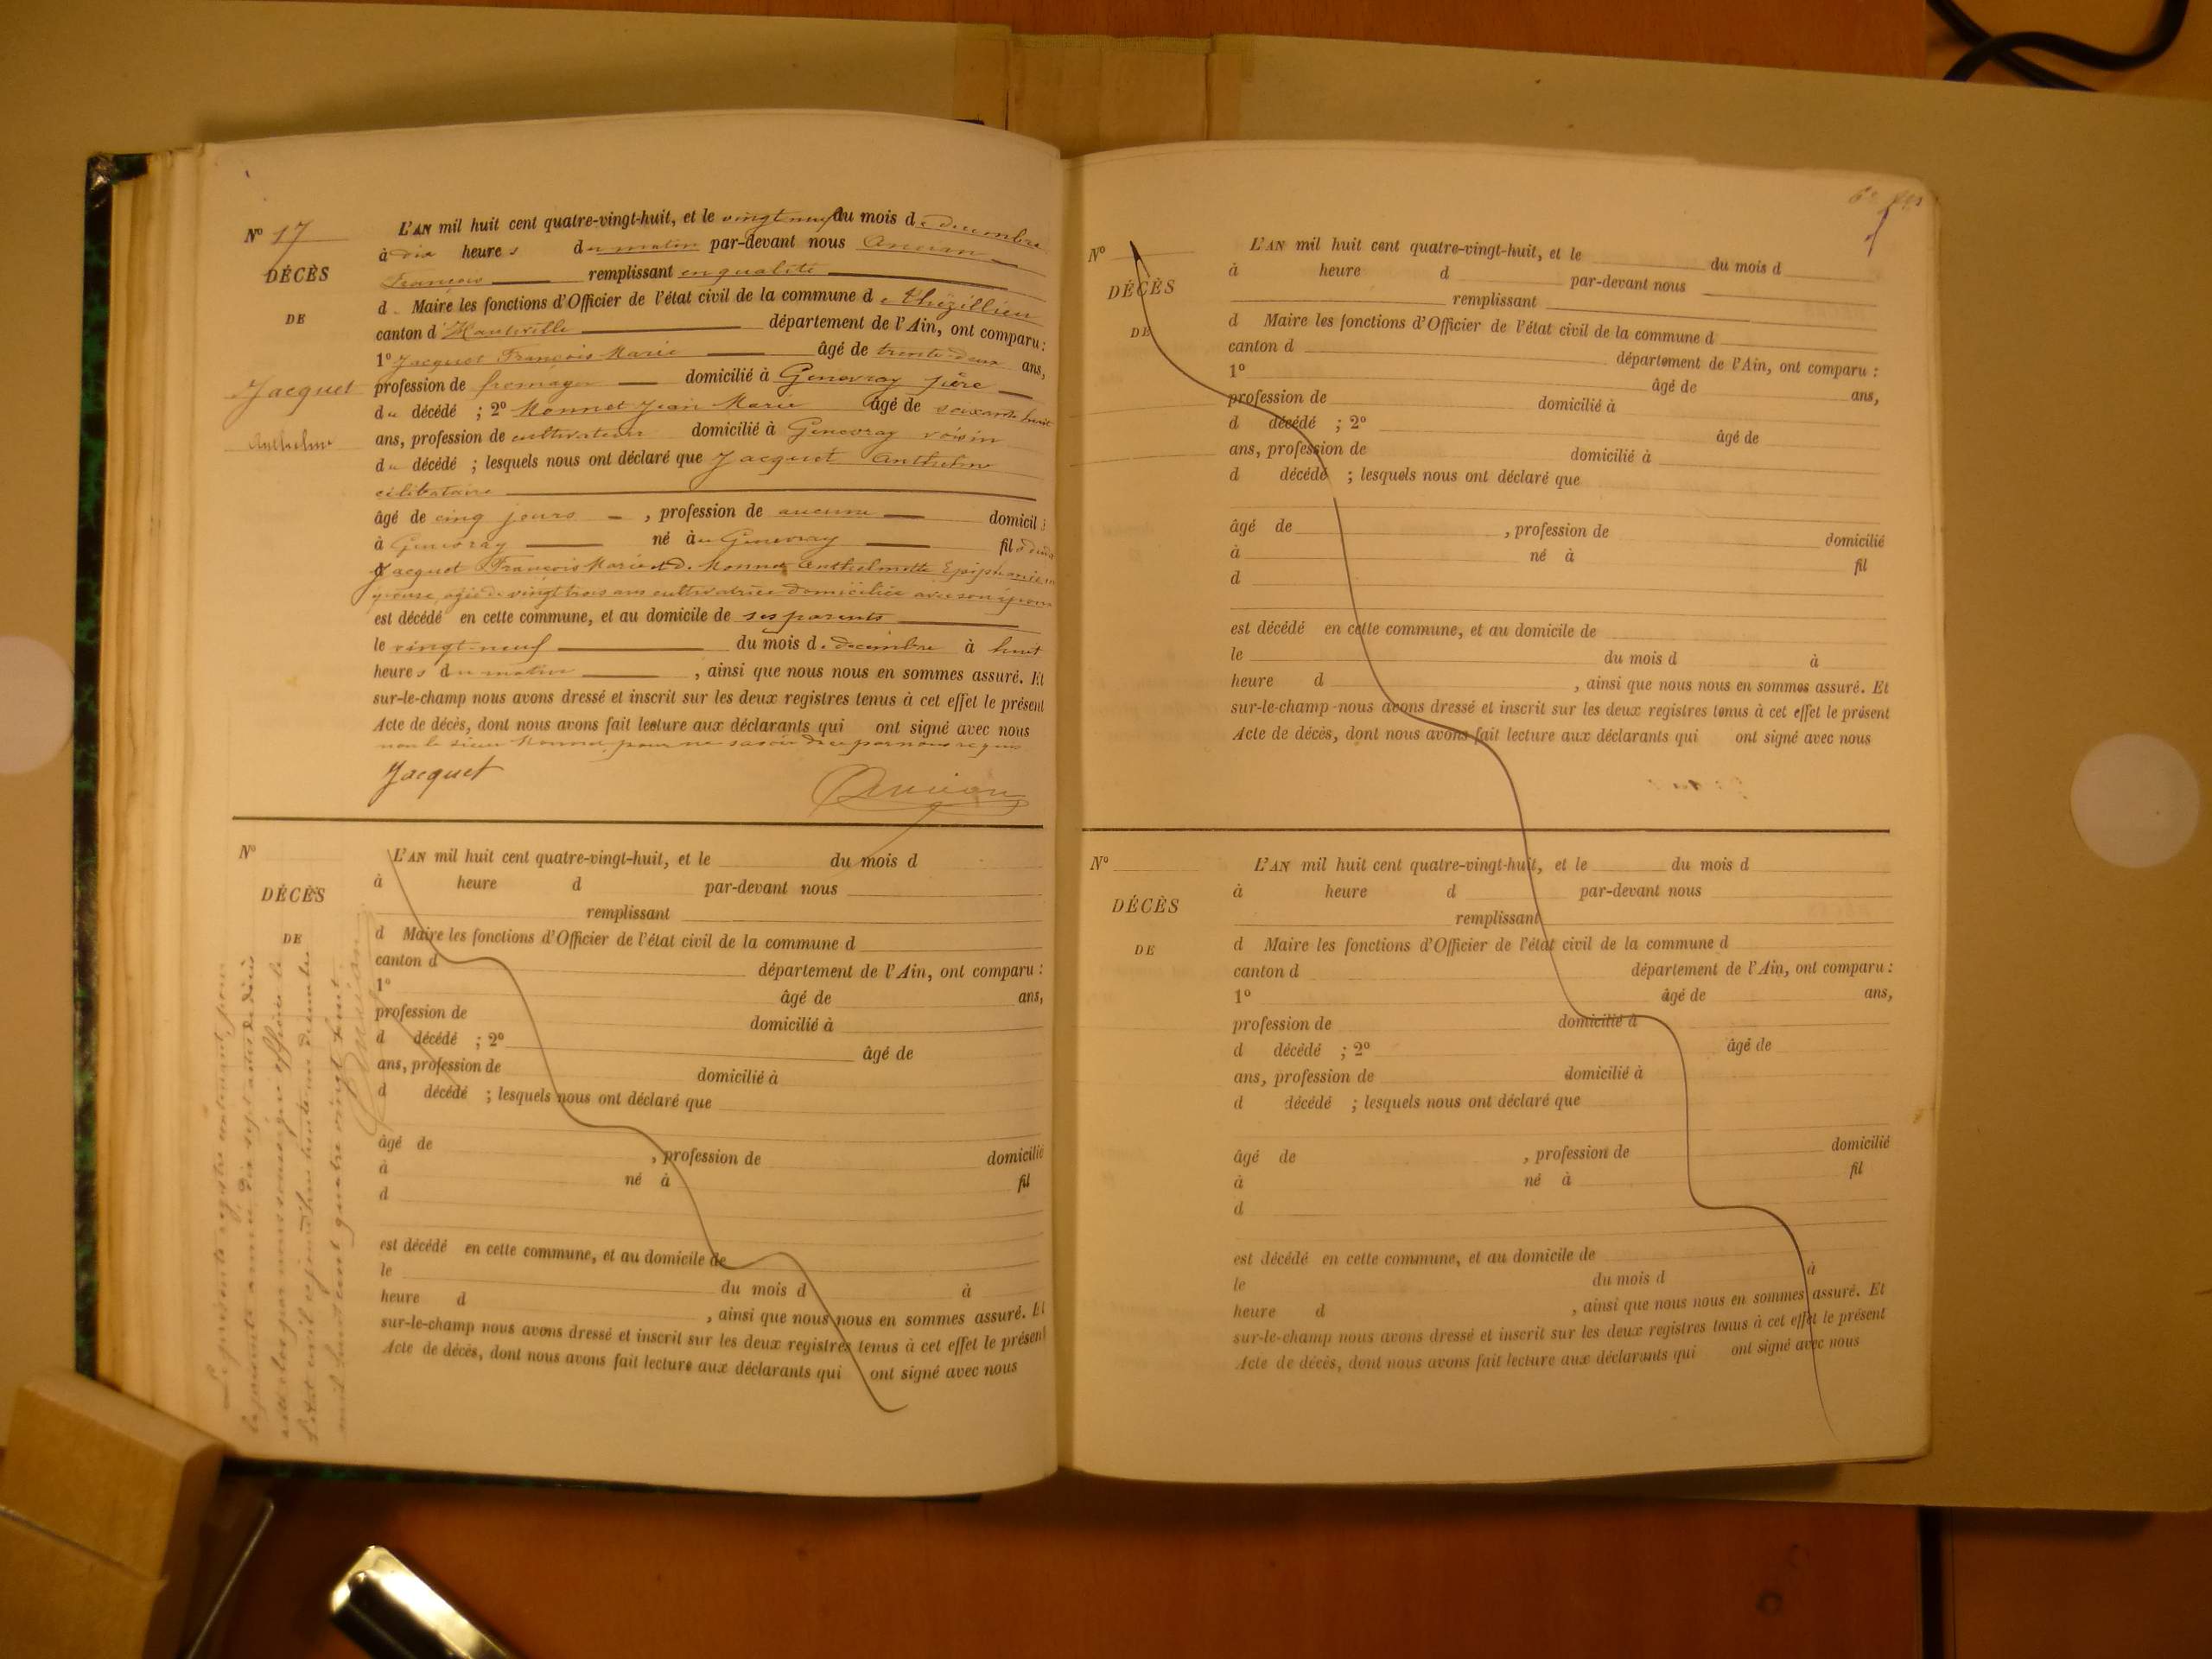 Nº 17
DÉCÈS
DE
Jacquet
Anthelme
L'AN mil huit cent quatre-vingt-huit, et le vingt neuf du mois de décembre
à dix heures du matin par-devant nous Ancian
François remplissant en qualité
d Maire les fonctions d'Officier de l'état civil de la commune de Thézillieu
canton d'Hauteville département de l'Ain, ont comparu :
1º Jacquet François Marie âgé de trente-deux ans,
profession de fromager domicilié à Genevray père
du décédé ; 2º Monnet Jean Marie âgé de soixante huit
ans, profession de cultivateur domicilié à Genevray voisin
du décédé ; lesquels nous ont déclaré que Jacquet Anthelme
célibataire
âgé de cinq jours , profession de aucune domicilié
à Genevray né à Genevray fils de
Jacquet François Marie et de Monnet Anthelmette Epiphanie
âgée de vingt trois ans cultivatrice domiciliée avec son époux
est décédé en cette commune, et au domicile de ses parents
le vingt-neuf du mois de décembre à huit
heures du matin , ainsi que nous nous en sommes assuré. Et
sur-le-champ nous avons dressé et inscrit sur les deux registres tenus à cet effet le présent
Acte de décès, dont nous avons fait lecture aux déclarants qui ont signé avec nous
non le sieur Monnet pour ne savoir de ce par nous requis
Jacquet
Ancian
Nº
DÉCÈS
DE
L'AN mil huit cent quatre-vingt-huit, et le du mois d
à heure d par-devant nous
remplissant
d Maire les fonctions d'Officier de l'état civil de la commune d
canton d département de l'Ain, ont comparu :
1º âgé de ans,
profession de domicilié à
d décédé ; 2º âgé de
ans, profession de domicilié à
d décédé ; lesquels nous ont déclaré que
âgé de , profession de domicilié
à né à fil
d
est décédé en cette commune, et au domicile de
le du mois d à
heure d , ainsi que nous nous en sommes assuré. Et
sur-le-champ nous avons dressé et inscrit sur les deux registres tenus à cet effet le présent
Acte de décès, dont nous avons fait lecture aux déclarants qui ont signé avec nous
Le présent registre contenant pour
la présente année dix sept actes de décès
a été clos par nous soussigné officier de
l'état civil cejourd'hui trente un décembre
mil huit cent quatre vingt huit
Ancian
Nº
DÉCÈS
DE
L'AN mil huit cent quatre-vingt-huit, et le du mois d
à heure d par-devant nous
remplissant
d Maire les fonctions d'Officier de l'état civil de la commune d
canton d département de l'Ain, ont comparu :
1º âgé de ans,
profession de domicilié à
d décédé ; 2º âgé de
ans, profession de domicilié à
d décédé ; lesquels nous ont déclaré que
âgé de , profession de domicilié
à né à fil
d
est décédé en cette commune, et au domicile de
le du mois d à
heure d , ainsi que nous nous en sommes assuré. Et
sur-le-champ nous avons dressé et inscrit sur les deux registres tenus à cet effet le présent
Acte de décès, dont nous avons fait lecture aux déclarants qui ont signé avec nous
Nº
DÉCÈS
DE
L'AN mil huit cent quatre-vingt-huit, et le du mois d
à heure d par-devant nous
remplissant
d Maire les fonctions d'Officier de l'état civil de la commune d
canton d département de l'Ain, ont comparu :
1º âgé de ans,
profession de domicilié à
d décédé ; 2º âgé de
ans, profession de domicilié à
d décédé ; lesquels nous ont déclaré que
âgé de , profession de domicilié
à né à fil
d
est décédé en cette commune, et au domicile de
le du mois d à
heure d , ainsi que nous nous en sommes assuré. Et
sur-le-champ nous avons dressé et inscrit sur les deux registres tenus à cet effet le présent
Acte de décès, dont nous avons fait lecture aux déclarants qui ont signé avec nous